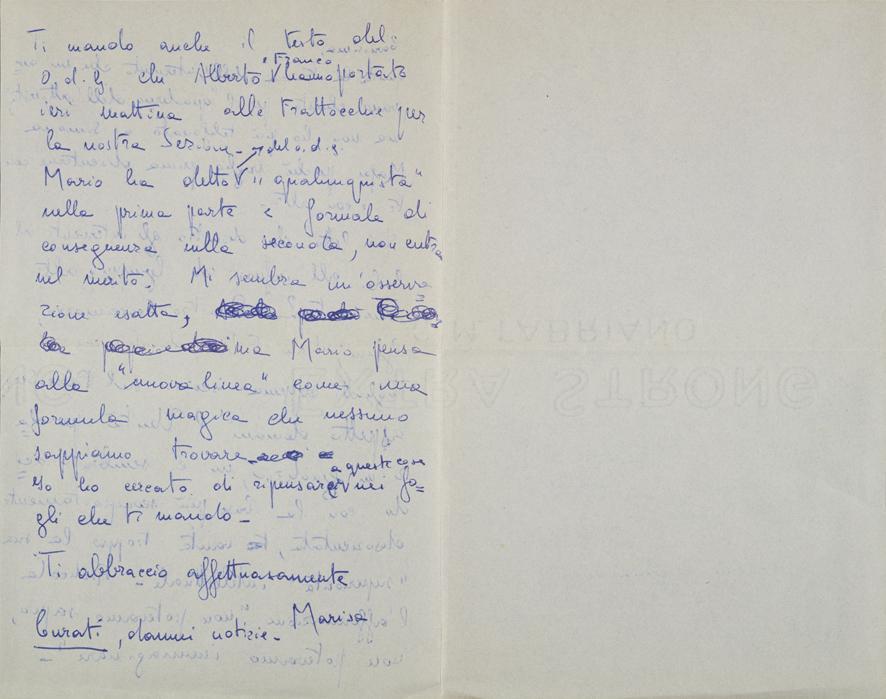 Ti mando anche il testo del
O.d.G che Alberto e Franco hanno portato
ieri mattina alle Frattocchie per
la nostra Sezione -
Mario ha detto del o.d.g. "qualunquista"
nella prima parte e formale di
conseguenza nella seconda, non entra
nel merito. Mi sembra un'osserva=
zione esatta,
ma Mario pensa
alla "nuova linea" come una
formula magica che nessuno
sappiamo trovare
Io ho cercato di ripensare a queste cose nei fo=
gli che ti mando -
Ti abbraccio affettuosamente
Marisa
Curati, dammi notizie -
FABRIANO
EXTRA STRONG